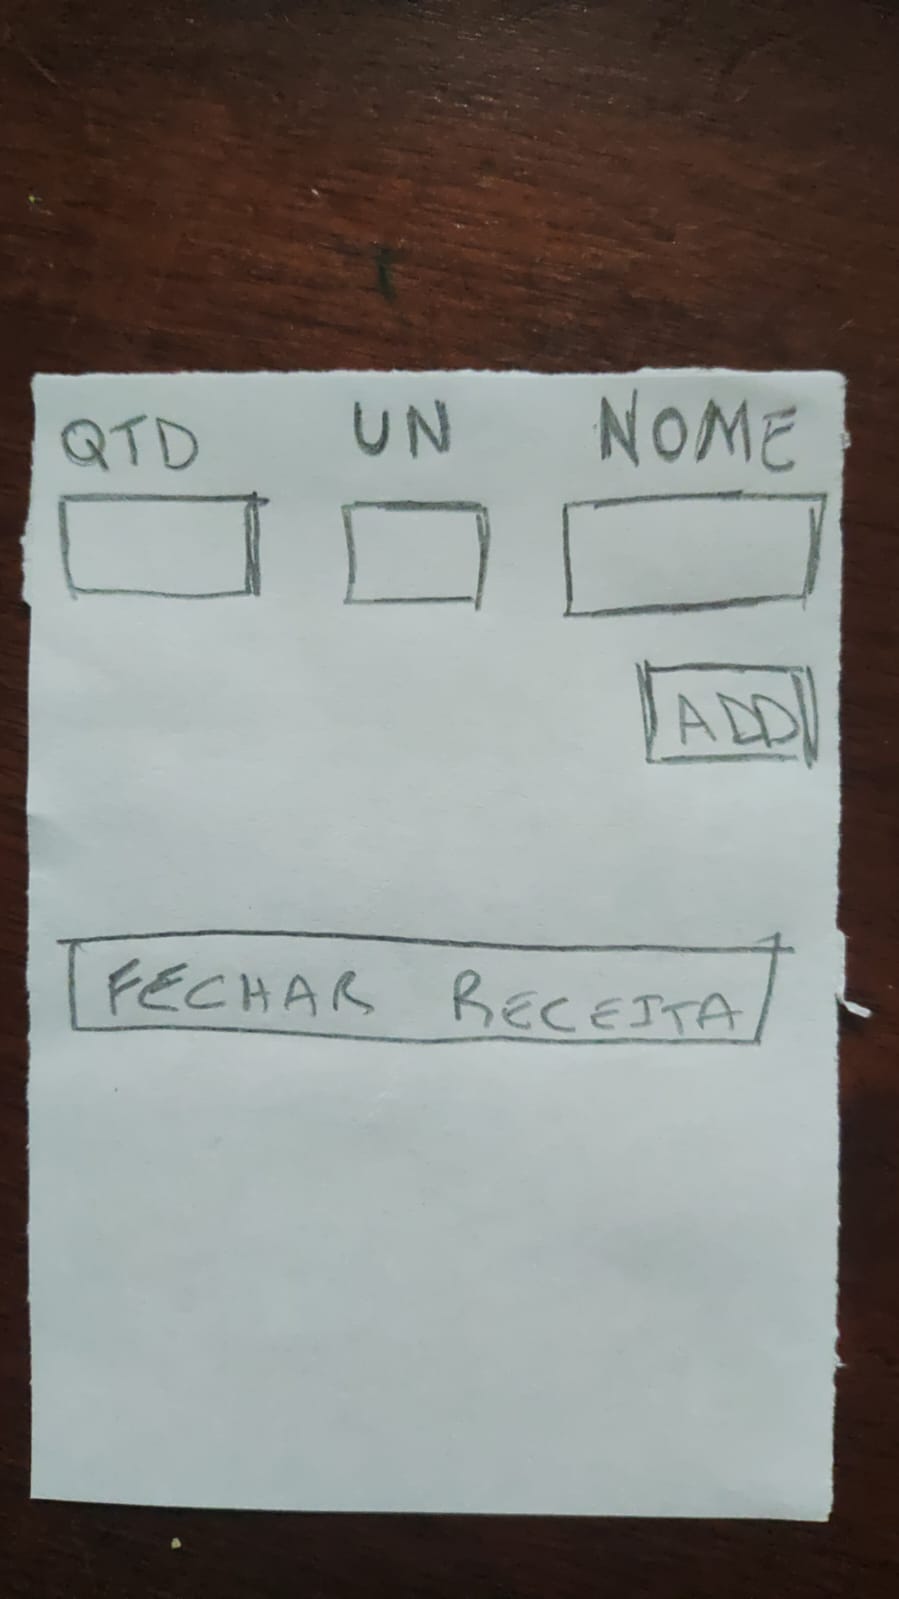 QTD UN NOME
ADD
FECHAR RECEITA